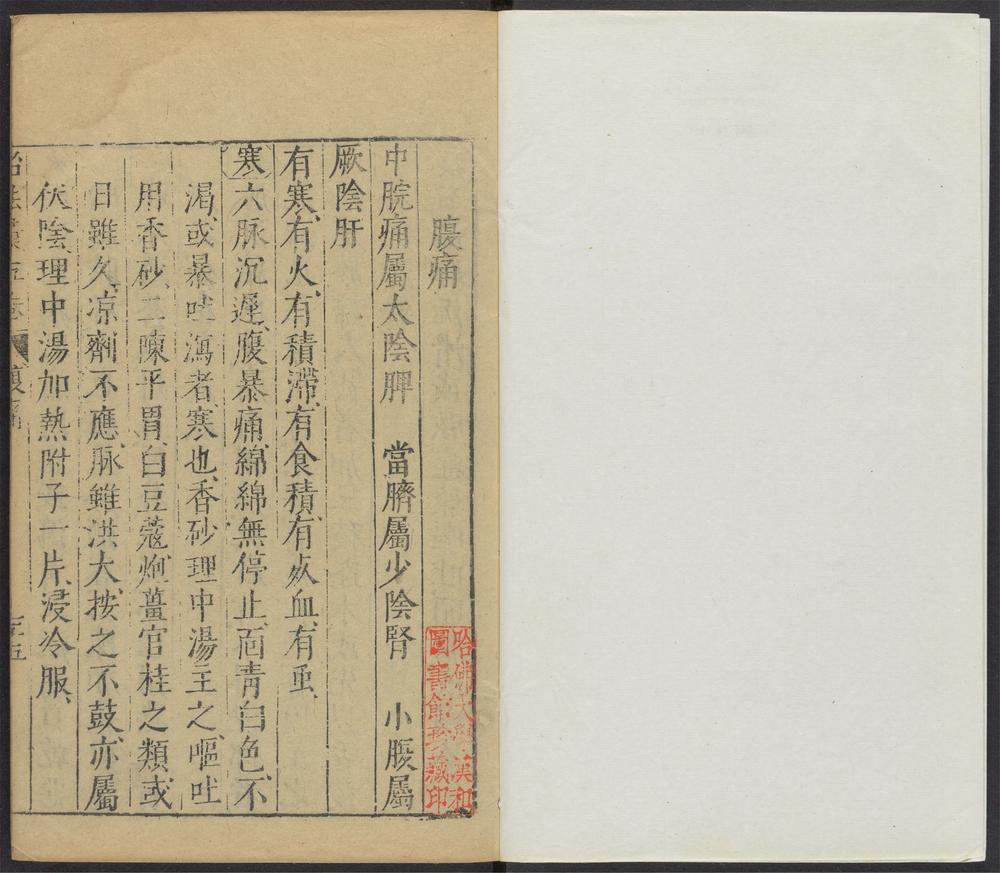 腹痛
中脘痛屬太陰脾　當臍屬少陰腎　小腹屬
厥陰肝
有寒、有火、有積滯、有食積、有死血、有虫、
寒六脉沉遲、腹暴痛、綿綿無停止、面青白色、不
渴或暴吐瀉者、寒也、香砂理中湯主之、嘔吐
用香砂、二陳平胃、白豆蔻炮薑官桂之類、或
日雖久、凉劑不應、脉雖洪大、按之不鼓、亦屬
伏陰、理中湯加熟附子一片、浸冷服、
五卷
腹痛
哈佛大學漢和
圖書館珍藏印